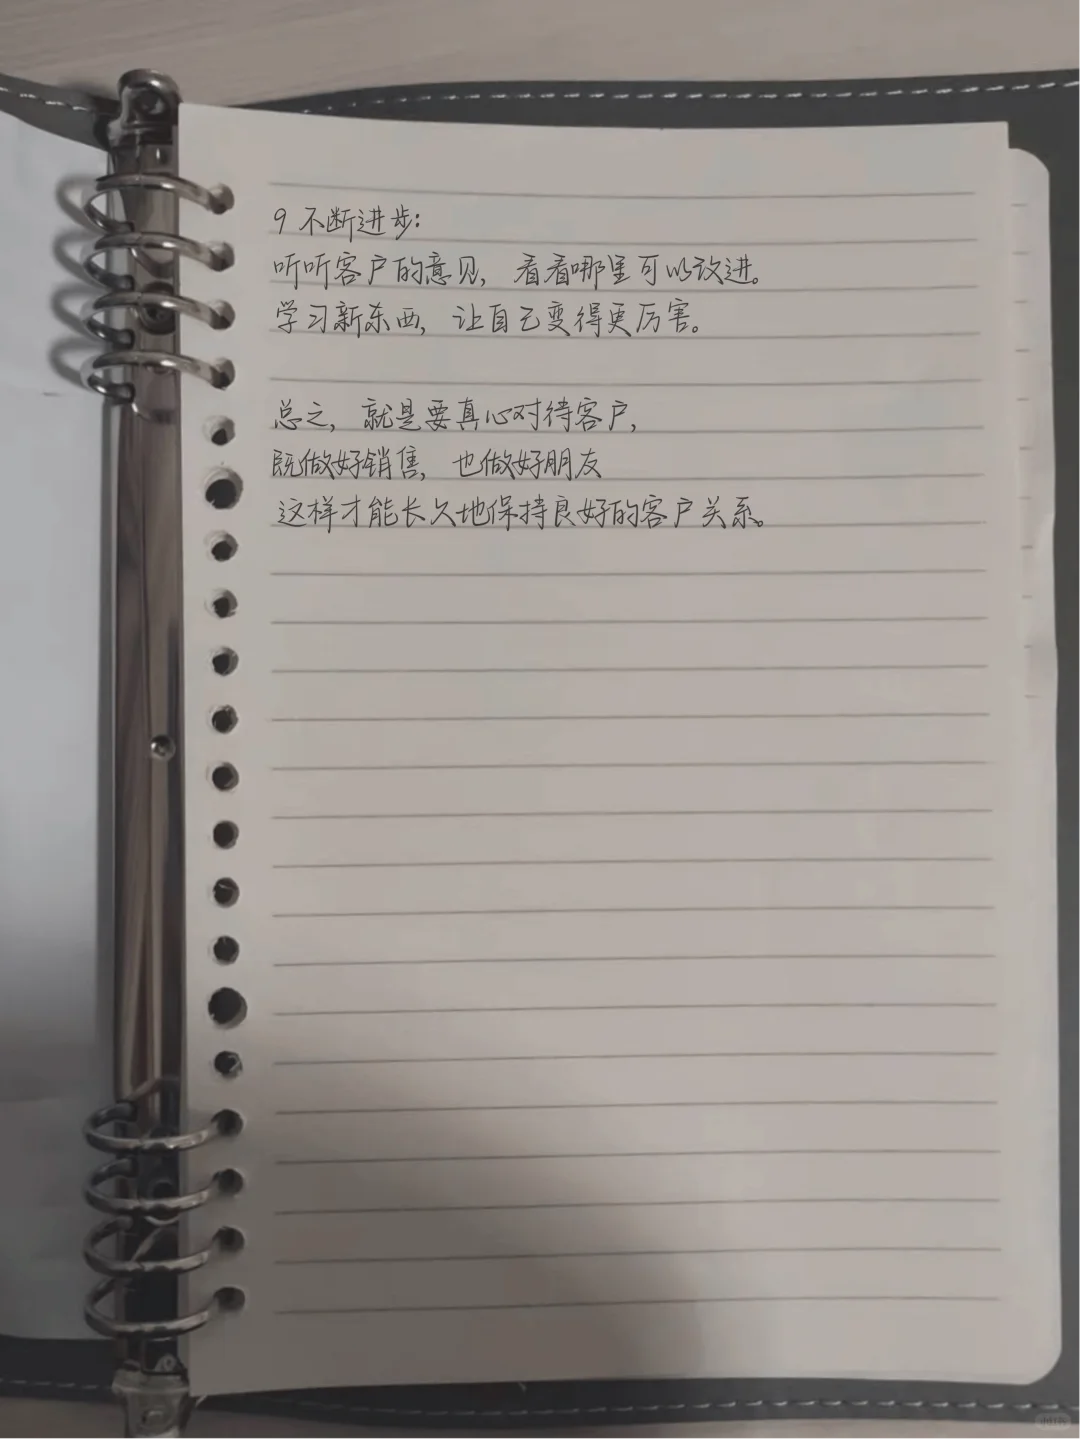 9 不断进步:
听听客户的意见, 看看哪里可以改进。
学习新东西, 让自己变得更厉害。
总之, 就是要真心对待客户,
既做好销售, 也做好朋友
这样才能长久地保持良好的客户关系。